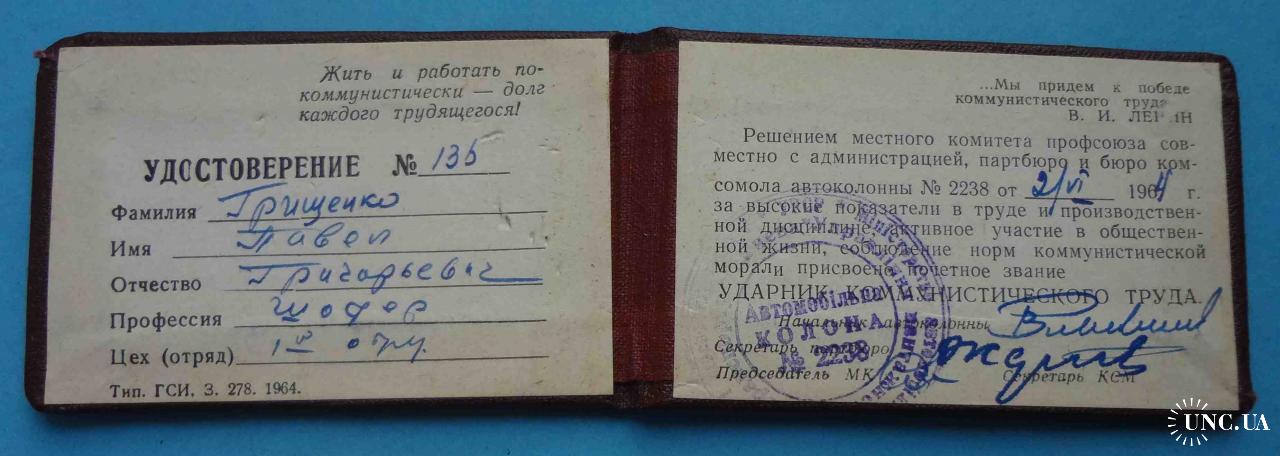 Жить и работать по-
коммунистически — долг
каждого трудящегося!
УДОСТОВЕРЕНИЕ № 135
Фамилия Грищенко
Имя Павел
Отчество Григорьевич
Профессия шофер
Цех (отряд) 1й отр.
Тип. ГСИ, З. 278. 1964.
...Мы придем к победе
коммунистического труда
В. И. ЛЕНИН
Решением местного комитета профсоюза сов-
местно с администрацией, партбюро и бюро ком-
сомола автоколонны № 2238 от 2/VI 1964 г.
за высокие показатели в труде и производствен-
ной дисциплине, активное участие в обществен-
ной жизни, соблюдение норм коммунистической
морали присвоено почетное звание
УДАРНИК КОММУНИСТИЧЕСКОГО ТРУДА.
Начальник автоколонны
Секретарь партбюро
Председатель МК Секретарь КСМ
Автомобільна
КОЛОНА
№ 2238
UNC.UA